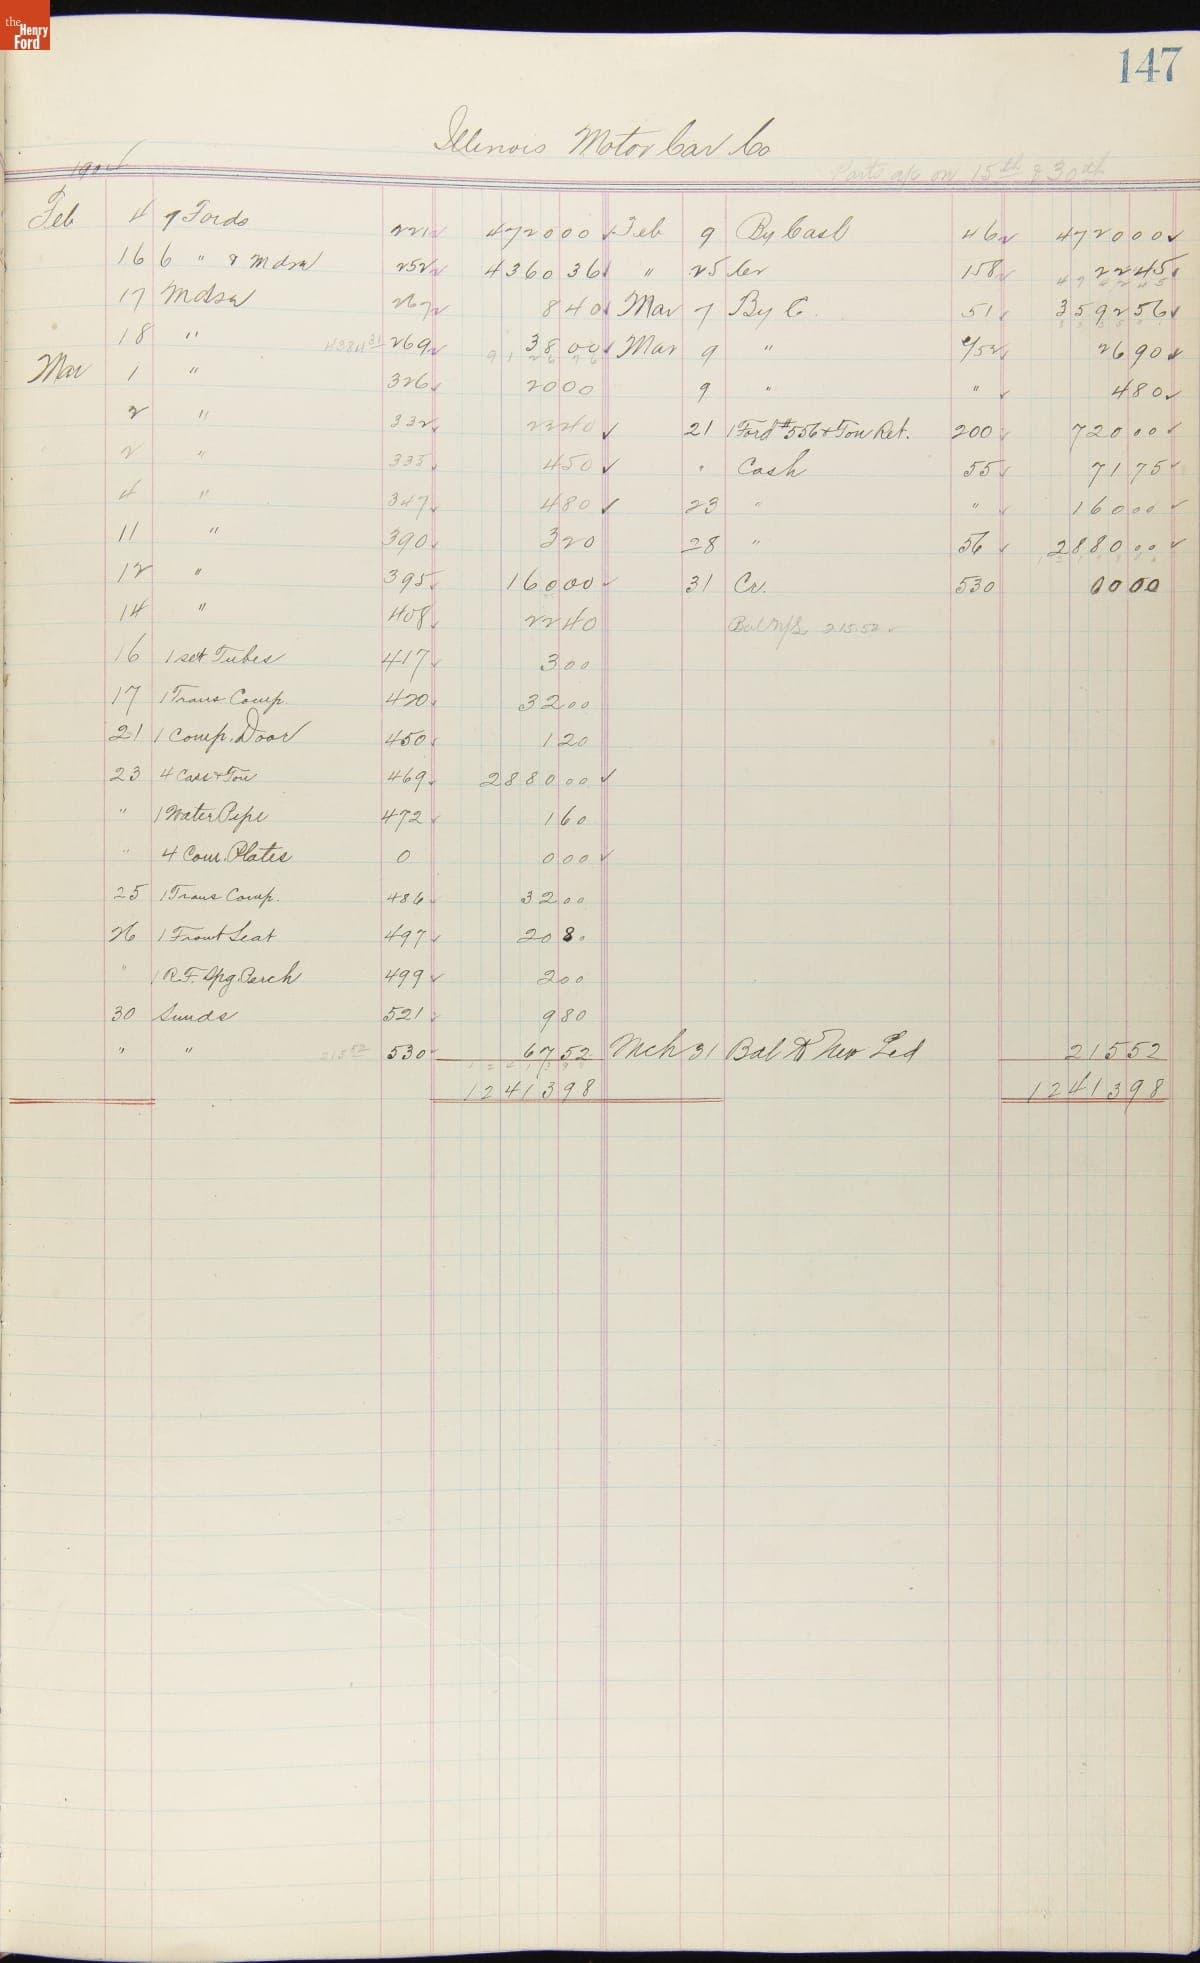 the Henry Ford
147
Illinois Motor Car Co
1904
Parts a/c on 15th & 30th
Feb 4 7 Fords 221 4720 00 Feb 9 By Cash 46 4720 00
16 6 " & Mdse 252 4360 36 " 25 Cr 158 22 45
17 Mdse 267 8 40 Mar 7 By C. 51 3592 56
18 " 4384 31 269 38 00 Mar 9 " c/52 26 90
Mar 1 " 326 20 00 9 " " 4 80
2 " 332 22 40 21 1 Ford #556 & Ton Ret. 200 720 00
2 " 335 4 50 " Cash 55 71 75
4 " 347 4 80 23 " " 160 00
11 " 390 3 20 28 " 56 2880 00
12 " 395 160 00 31 Cr. 530 00 00
14 " 408 22 40 Bal 215.52
16 1 set Tubes 417 3 00
17 1 Trans Comp. 420 32 00
21 1 Comp. Door 450 1 20
23 4 Cars & Ton 469 2880 00
" 1 Water Pipe 472 1 60
" 4 Com. Plates 0 0 00
25 1 Trans Comp. 486 32 00
26 1 Front Seat 497 20 80
" 1 R.F. Spg. Perch 499 2 00
30 Sunds 521 9 80
" " 215 52 530 67 52 Mch 31 Bal to New Led 215 52
12413 98 12413 98